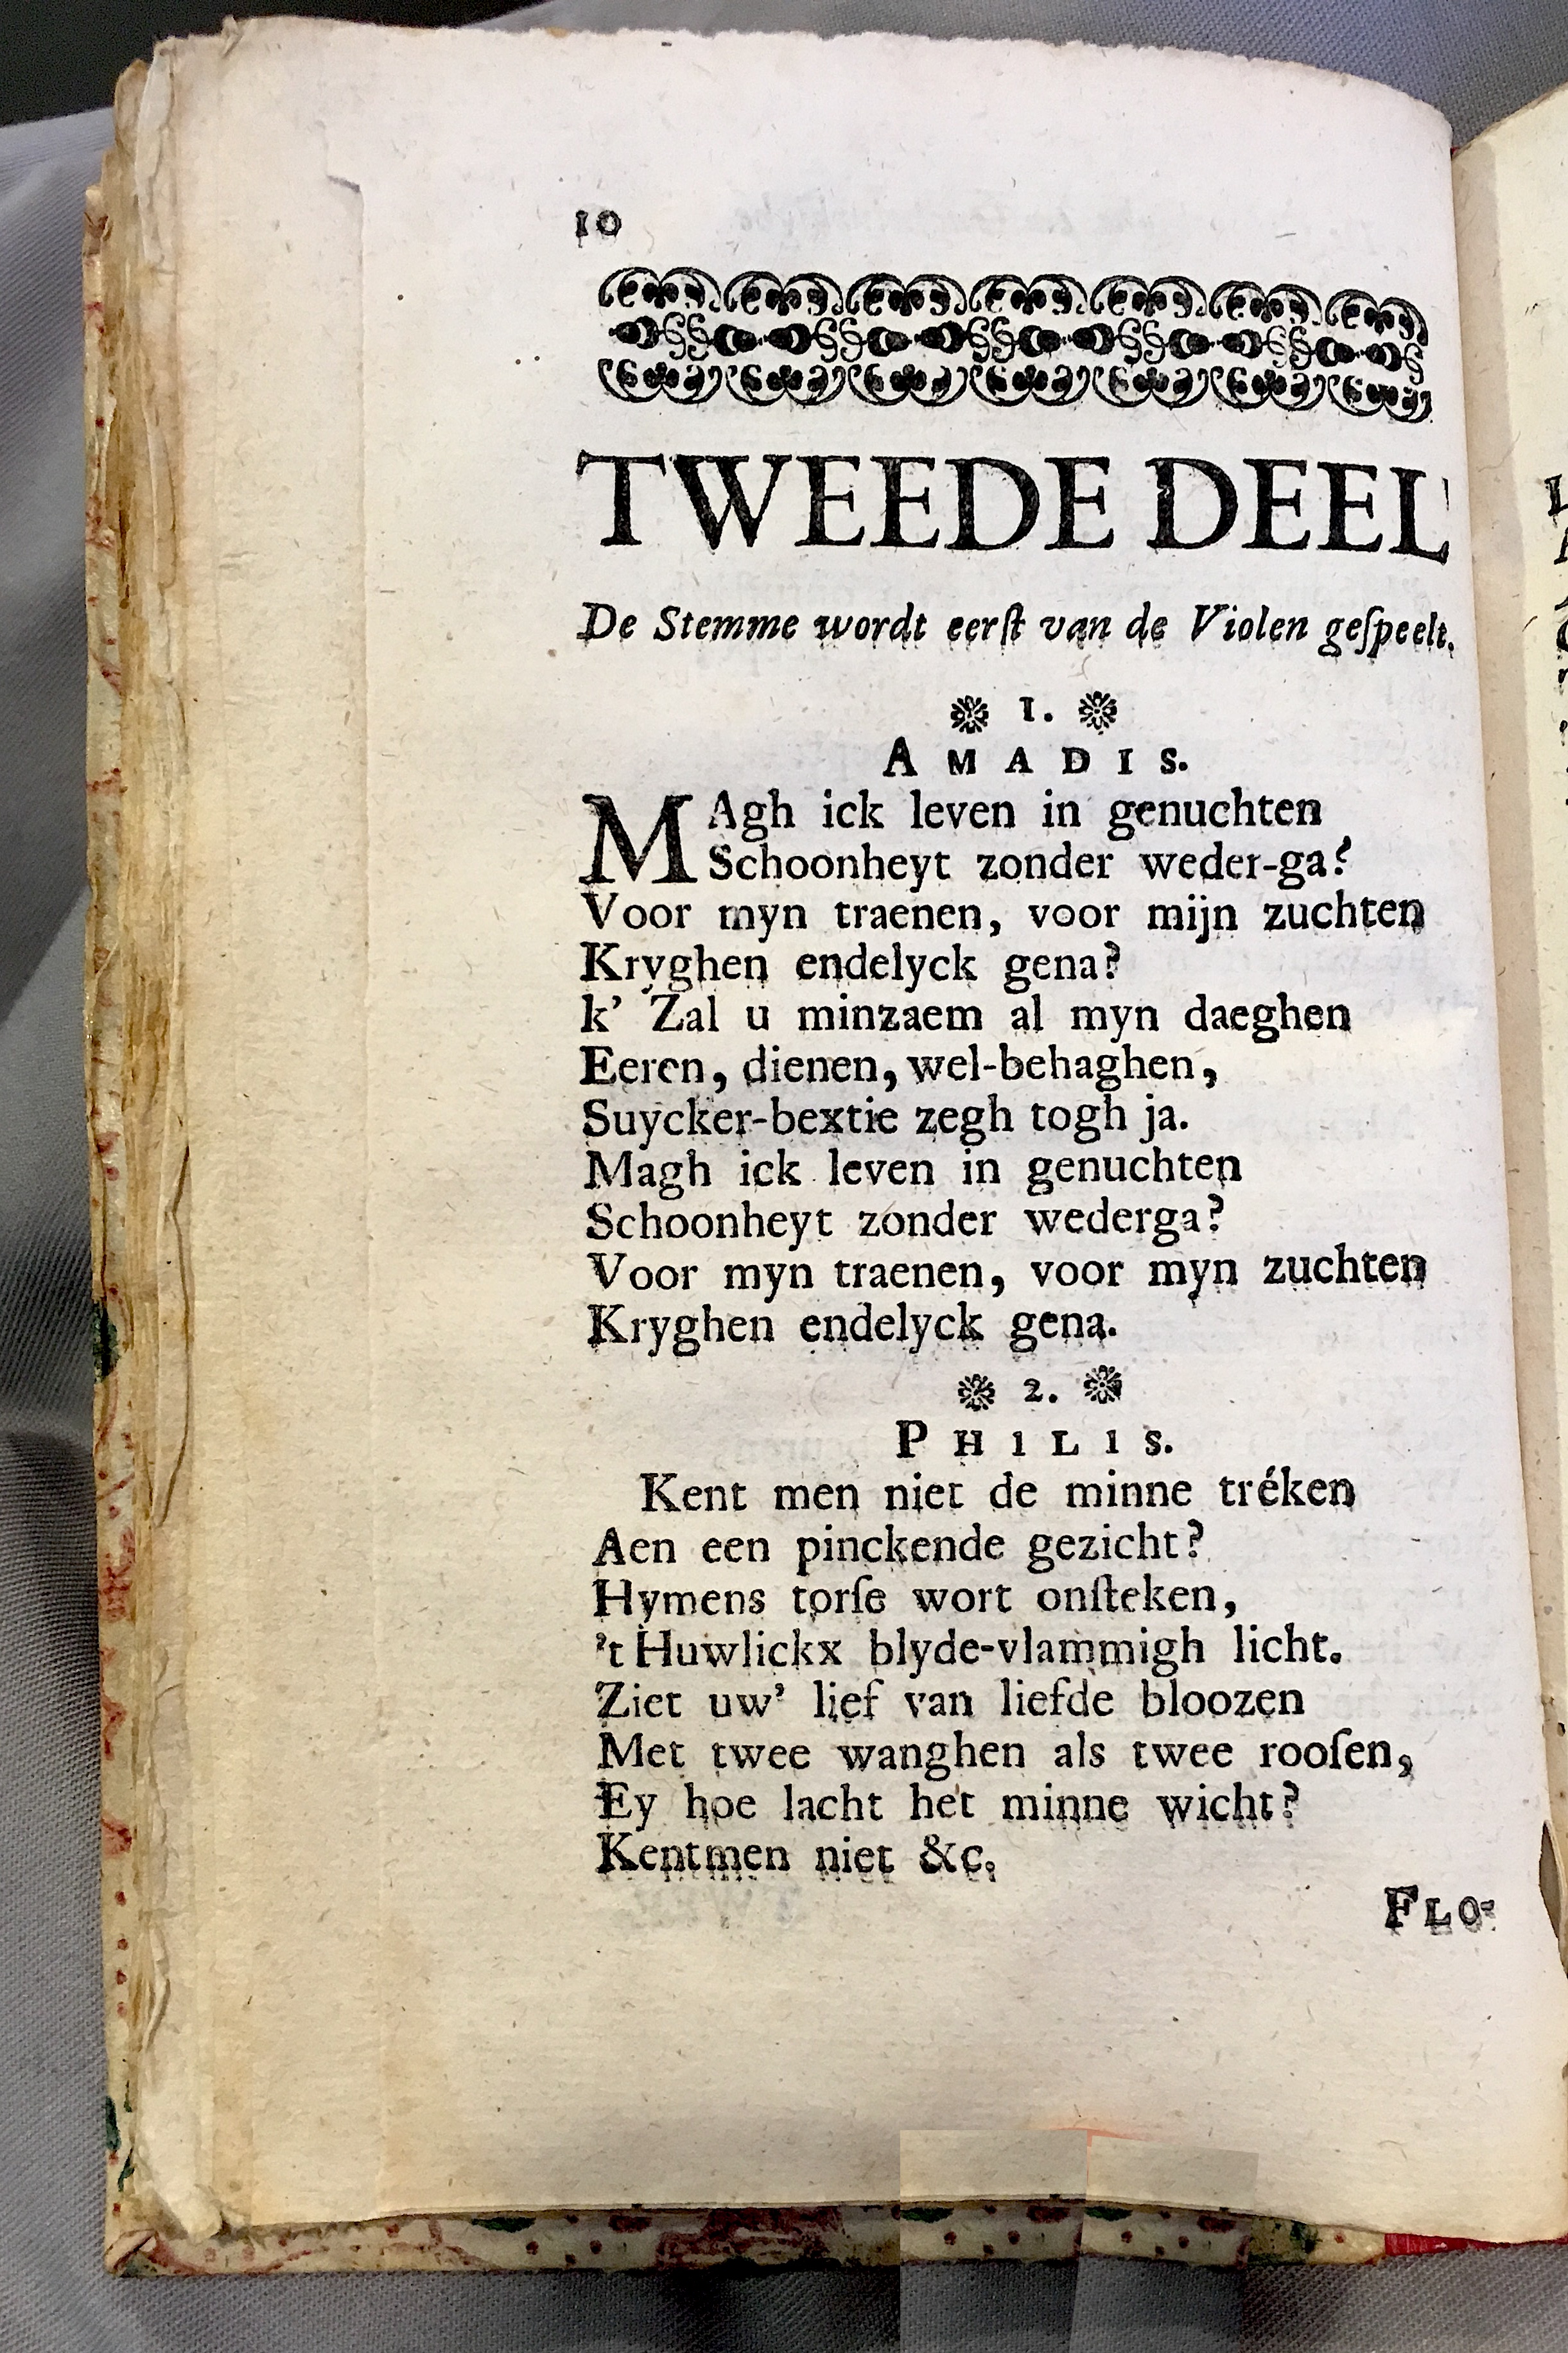 10
TWEEDE DEEL
De Stemme wordt eerſt van de Violen geſpeelt.
1.
AMADIS.
MAgh ick leven in genuchten
Schoonheyt zonder weder-ga?
Voor myn traenen, voor mijn zuchten
Kryghen endelyck gena?
k' Zal u minzaem al myn daeghen
Eeren, dienen, wel-behaghen,
Suycker-bextie zegh togh ja.
Magh ick leven in genuchten
Schoonheyt zonder wederga?
Voor myn traenen, voor myn zuchten
Kryghen endelyck gena.
2.
PHILIS.
Kent men niet de minne tréken
Aen een pinckende gezicht?
Hymens torſe wort onſteken,
't Huwlickx blyde-vlammigh licht.
Ziet uw' lief van liefde bloozen
Met twee wanghen als twee rooſen,
Ey hoe lacht het minne wicht?
Kentmen niet &c.
FLO-